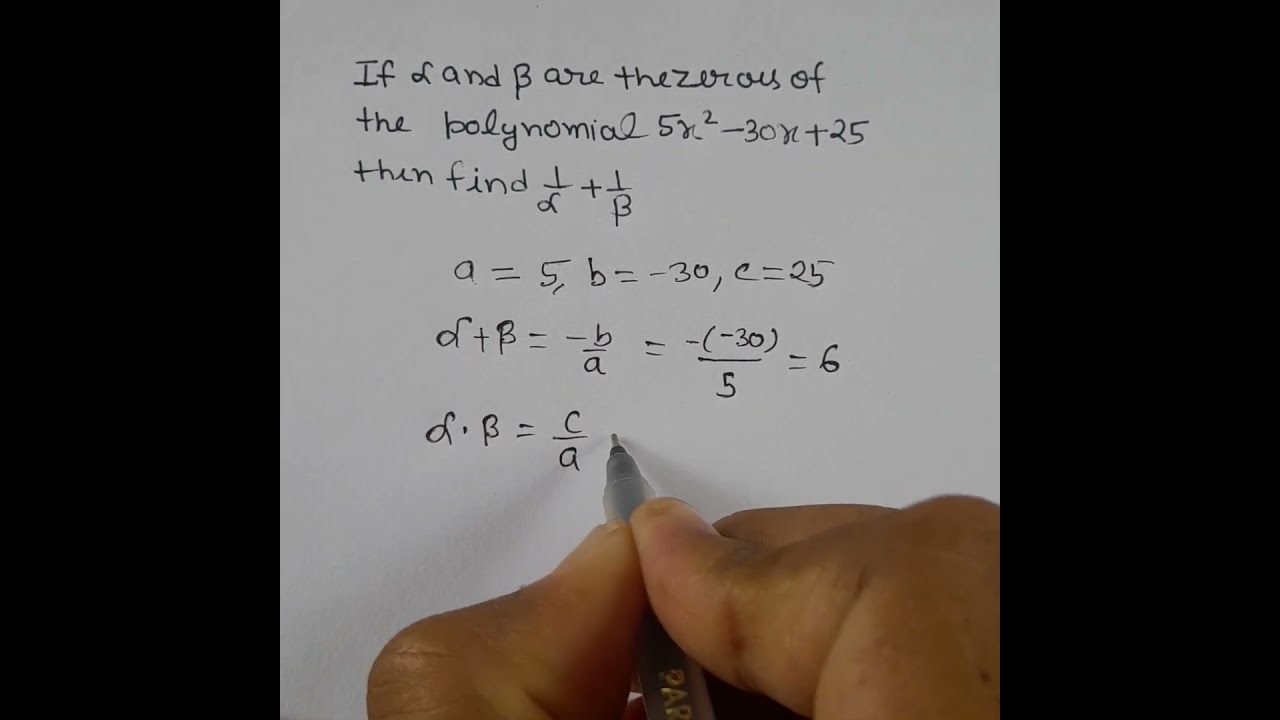 If α and β are the zerous of
the polynomial 5x² - 30x + 25
then find 1/α + 1/β
a = 5, b = -30, c = 25
α + β = -b/a = -(-30)/5 = 6
α · β = c/a
PAR